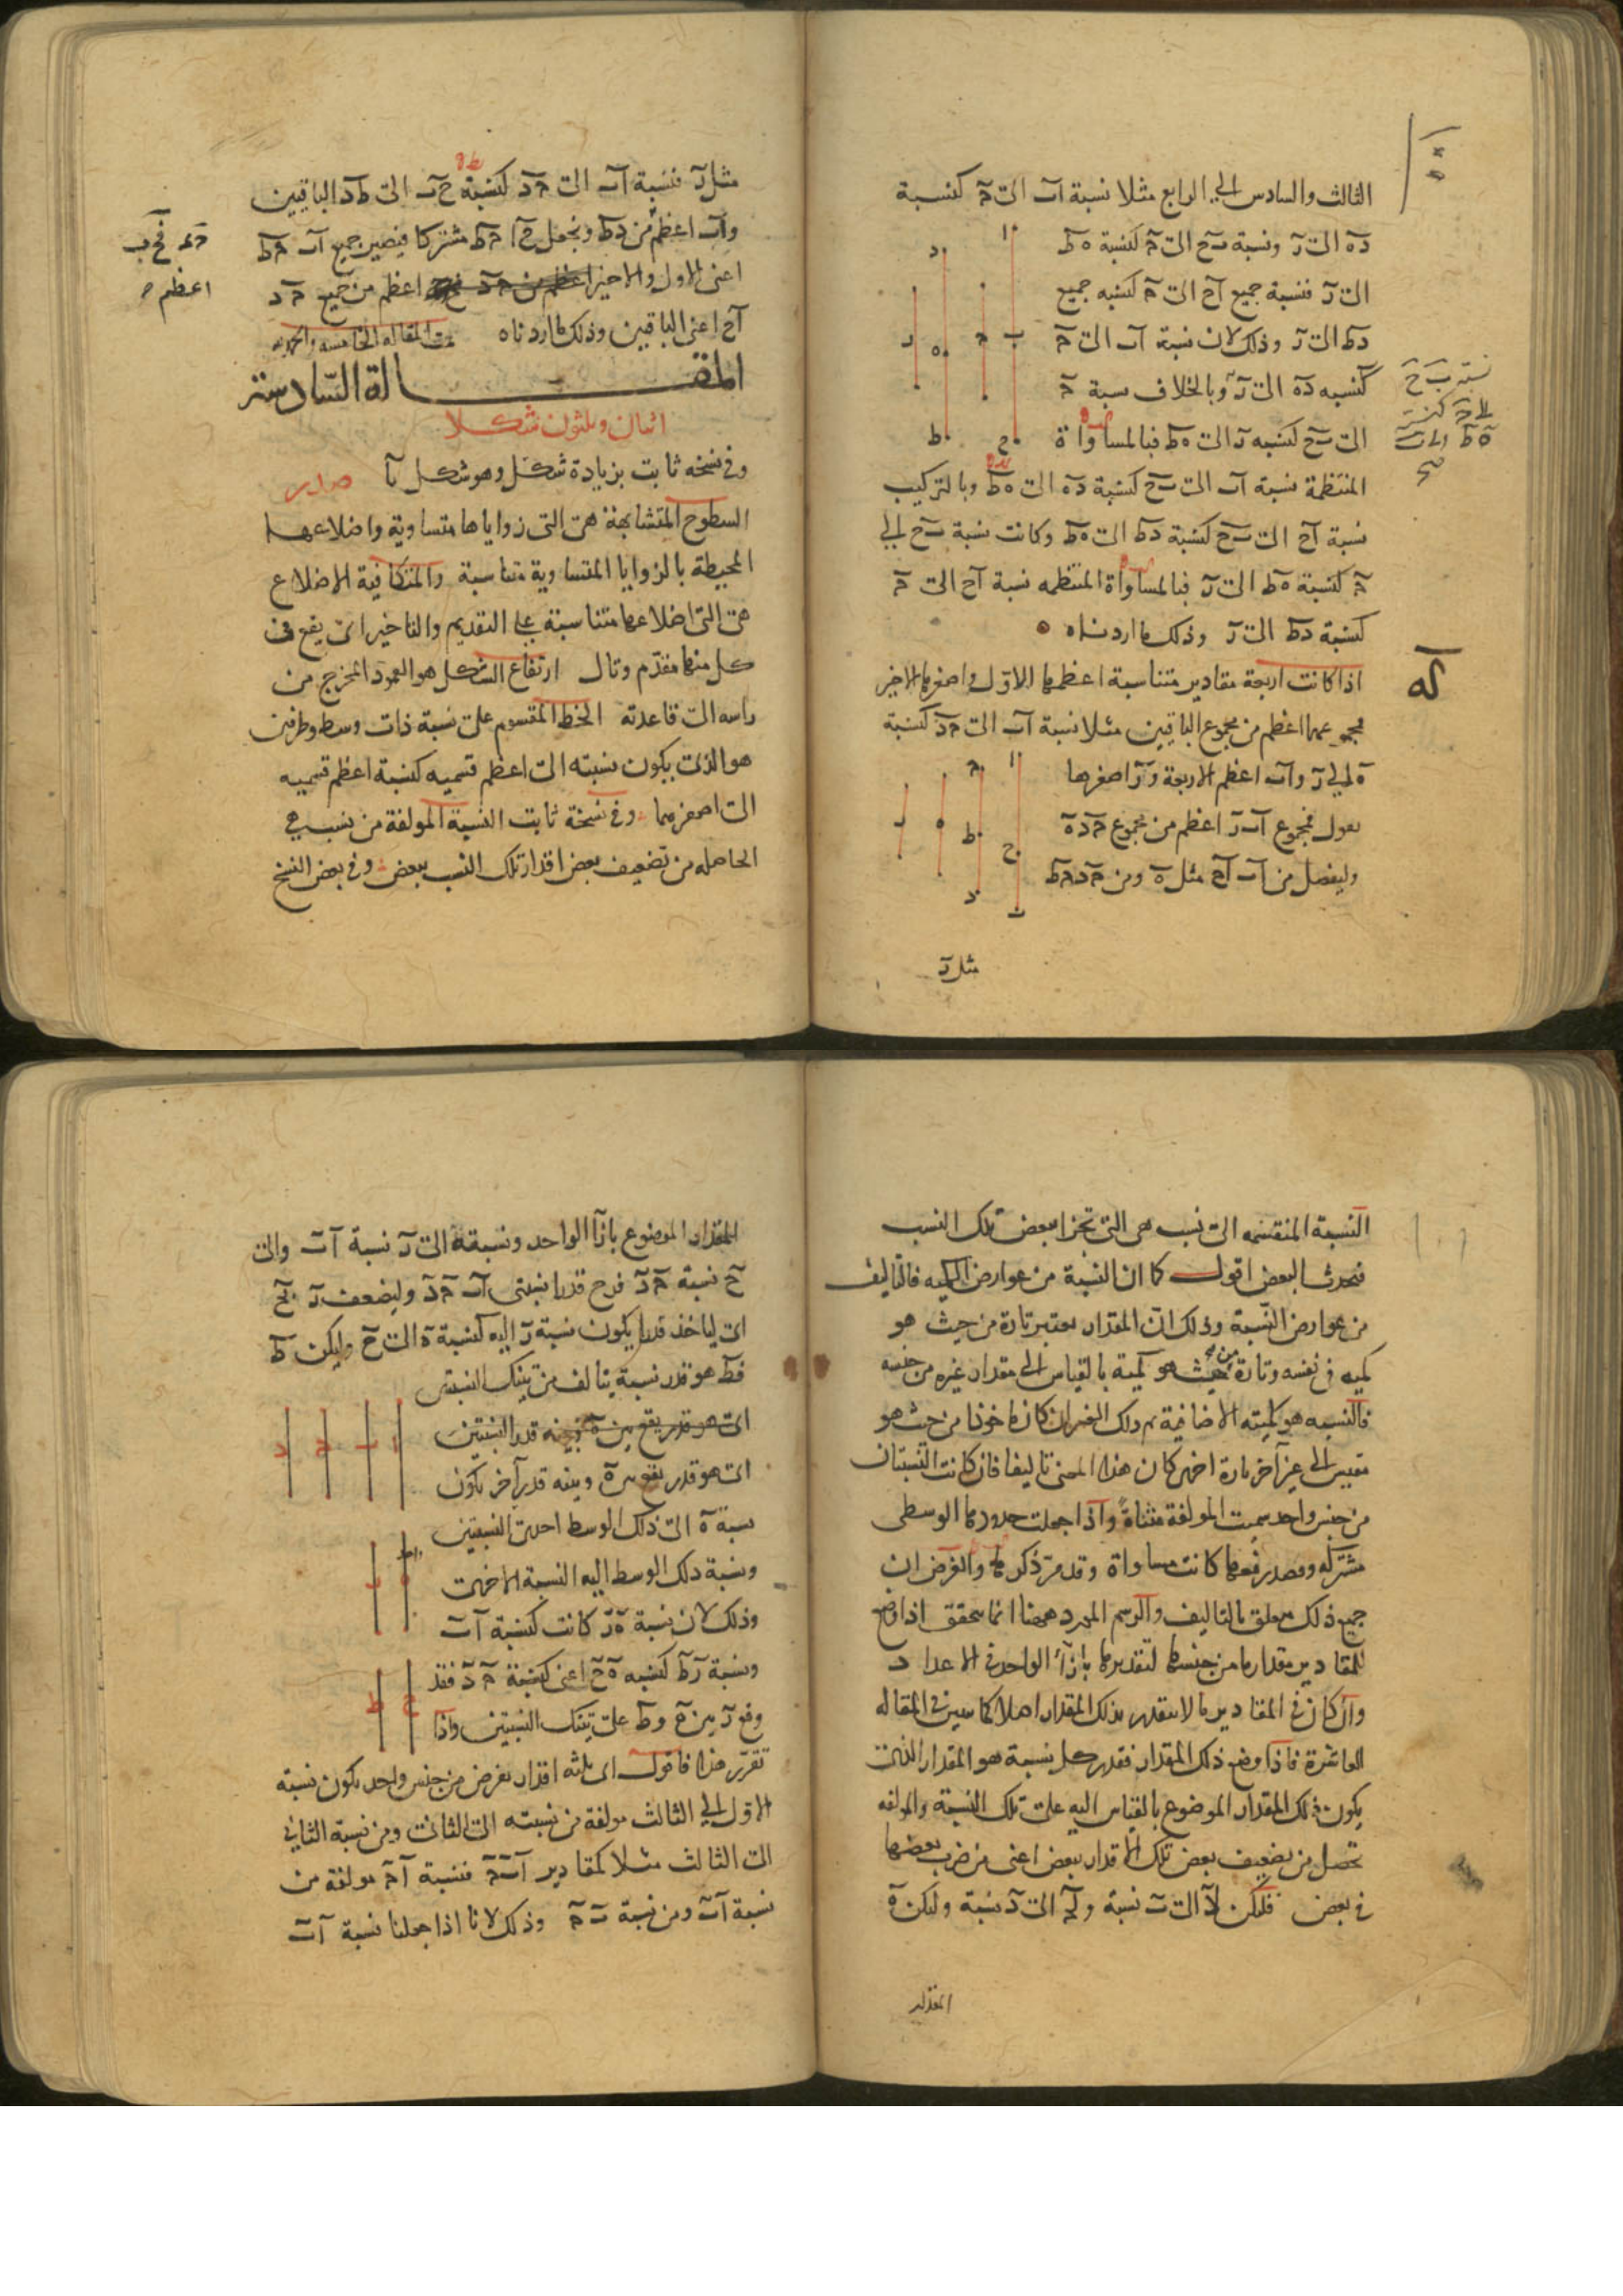 الثالث والسادس الى الرابع مثلا نسبة آب الى جـ كنسبة
ده الى ر ونسبة بح الى جـ كنسبة ه ط
الى ر فنسبة جميع آح الى جـ كنسبة جميع
دط الى ر وذلك لان نسبة آب الى جـ
كنسبه ده الى ر وبالخلاف نسبة جـ
الى بح كنسبه ر الى ه ط فبالمساواة
المنتظمة نسبة آب الى بح كنسبة ده الى ه ط وبالتركيب
نسبة آح الى بح كنسبة دط الى ه ط وكانت نسبة بح الى
جـ كنسبة ه ط الى ر فبالمساواة المنتظمه نسبة آح الى جـ
كنسبة دط الى ر وذلك ما اردناه
كه
اذا كانت اربعة مقادير متناسبة اعظمها الاول واصغرها الاخير
فمجموعهما اعظم من مجموع الباقيين مثلا نسبة آب الى جد كنسبة
ه الى ر وآب اعظم الاربعة ور اصغرها
نقول فمجموع آب ر اعظم من مجموع جد ه
وليفصل من آب آح مثل ه ومن جد جط
مثل ر
مثل ر فنسبة آب الى جد كنسبة ح ب الى ط د الباقيين
وآب اعظم من دط ونجعل ح ا جط مشتركا فيصير جميع آب جط
اعنى الاول والاخير اعظم من جميع جد
آح اعنى الباقيين وذلك ما اردناه
تمت المقاله الخامسه
المقالة السادسة
اثنان وثلثون شكلا
وفى نسخه ثابت بزيادة شكل وهو شكل يا صدر
السطوح المتشابهة هى التى زواياها متساوية واضلاعها
المحيطة بالزوايا المتساوية متناسبة والمتكافية الاضلاع
هى التى اضلاعها متناسبة على التقديم والتاخير اى يقع فى
كل منهما مقدّم وتال ارتفاع الشكل هو العمود المخرج من
راسه الى قاعدته الخط المقسوم على نسبة ذات وسط وطرفين
هو الذى يكون نسبته الى اعظم قسميه كنسبة اعظم قسميه
الى اصغرهما وفى نسخة ثابت النسبة المولفة من نسب هى
الحاصله من تضعيف بعض اقدار تلك النسب ببعض وفى بعض النسخ
النسبة المنقسمه الى نسب هى التى تجزا ببعض تلك النسب
فيحدث البعض اقول كما ان النسبة من عوارض الكميه فالتاليف
من عوارض النسبة وذلك ان المقدار يعتبر تارة من حيث هو
كميه فى نفسه وتارة من حيث هو كمية بالقياس الى مقدار غيره من جنسه
فالنسبه هو كميته الاضافية ثم ذلك الغير ان كان ماخوذا من حيث هو
مقيس الى غير آخر تارة اخرى كان هذا المعنى تاليفا فان كانت النسبتان
من جنس واحد سميت المولفة مثناة واذا جعلت حدودها الوسطى
مشتركه وقصد رفعها كانت مساواة وقد مرّ ذكرها والغرض ان
جميع ذلك متعلق بالتاليف والرسم المورد ههنا انما يتحقق اذا وضع
للمقادير مقدار ما من جنسها لتقديرها بازاء الواحد فى الاعداد
وان كان فى المقادير ما لا يتقدر بذلك المقدار اصلا كما سيبين فى المقاله
العاشرة فاذا وضع ذلك المقدار فقدر كل نسبة هو المقدار الذى
يكون ذلك المقدار الموضوع بالقياس اليه على تلك النسبة والمولفه
تحصل من تضعيف بعض تلك الاقدار ببعض اعنى من ضرب بعضها
فى بعض فليكن لآ الى ب نسبة ولجـ الى د نسبة وليكن ه
المقدار
المقدار الموضوع بازآ الواحد ونسبة ه الى ر نسبة آب والى
ح نسبة جد فر ح قدرا نسبتى آب جد وليضعف ر بح
اى لياخذ قدرا يكون نسبة ر اليه كنسبة ه الى ح وليكن ط
فط هو قدر نسبة يتالف من تينك النسبتين
اى هو قدر يقع بين ه وبينه قدر آخر يكون
نسبة ه الى ذلك الوسط احدى النسبتين
ونسبة ذلك الوسط اليه النسبة الاخرى
وذلك لان نسبة ه ر كانت كنسبة آب
ونسبة ر ط كنسبه ه ح اعنى كنسبة جد فقد
وقع ر بين ه وط على تينك النسبتين واذا
تقرر هذا فاقول اى ثلثه اقدار يفرض من جنس واحد يكون نسبة
الاول الى الثالث مولفة من نسبته الى الثانى ومن نسبة الثانى
الى الثالث مثلا كمقادير آ ب جـ فنسبة آ جـ مولفة من
نسبة آب ومن نسبة ب جـ وذلك لانا اذا جعلنا نسبة آب